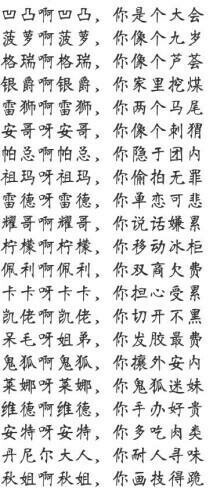 凹凸啊凹凸，你是个大会
菠萝啊菠萝，你像个九岁
格瑞啊格瑞，你像个芦荟
银爵啊银爵，你家里挖煤
雷狮啊雷狮，你两个马尾
安哥呀安哥，你是个刺猬
帕总啊帕总，你隐于团内
祖玛呀祖玛，你偷拍无罪
雷德呀雷德，你单恋可悲
耀哥啊耀哥，你说话嫌累
柠檬啊柠檬，你移动冰柜
佩利啊佩利，你双商欠费
卡卡呀卡卡，你担心受累
凯佬啊凯佬，你切开不黑
呆毛呀姐弟，你发胶最费
鬼狐啊鬼狐，你攘外安内
莱娜呀莱娜，你鬼狐迷妹
维德啊维德，你手办好贵
安特呀安特，你多吃肉类
丹尼尔大人，你耐人寻味
秋姐啊秋姐，你画技得跪